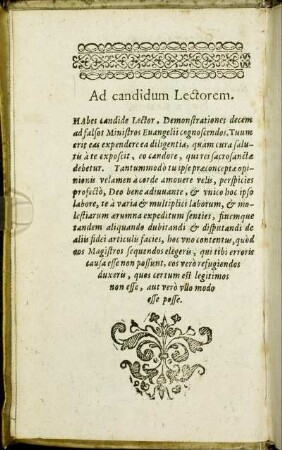 Ad candidum Lectorem.
HAbes candide Lector, Demonstrationes decem
ad falsos Ministros Euangelii cognoscendos, Tuum
erit eas expendere ea diligentia, quam cura salu-
tis à te exposcit, eo candore, qui rei sacrosanctæ
debetur. Tantummodo tu ipse præconceptæ opi-
nionis velamen a corde amouere velis, perspicies
profectò, Deo bene adiuuante, & vnico hoc ipso
labore, te à varia & multiplici laborum, & mo-
lestiarum ærumna expeditum senties, finemque
tandem aliquando dubitandi & disputandi de
aliis fidei articulis facies, hoc vno contentus, quòd
eos Magistros sequendos elegeris, qui tibi erroris
causa esse non possunt, eos verò refugiendos
duxeris, quos certum est legitimos
non esse, aut verò vllo modo
esse posse.